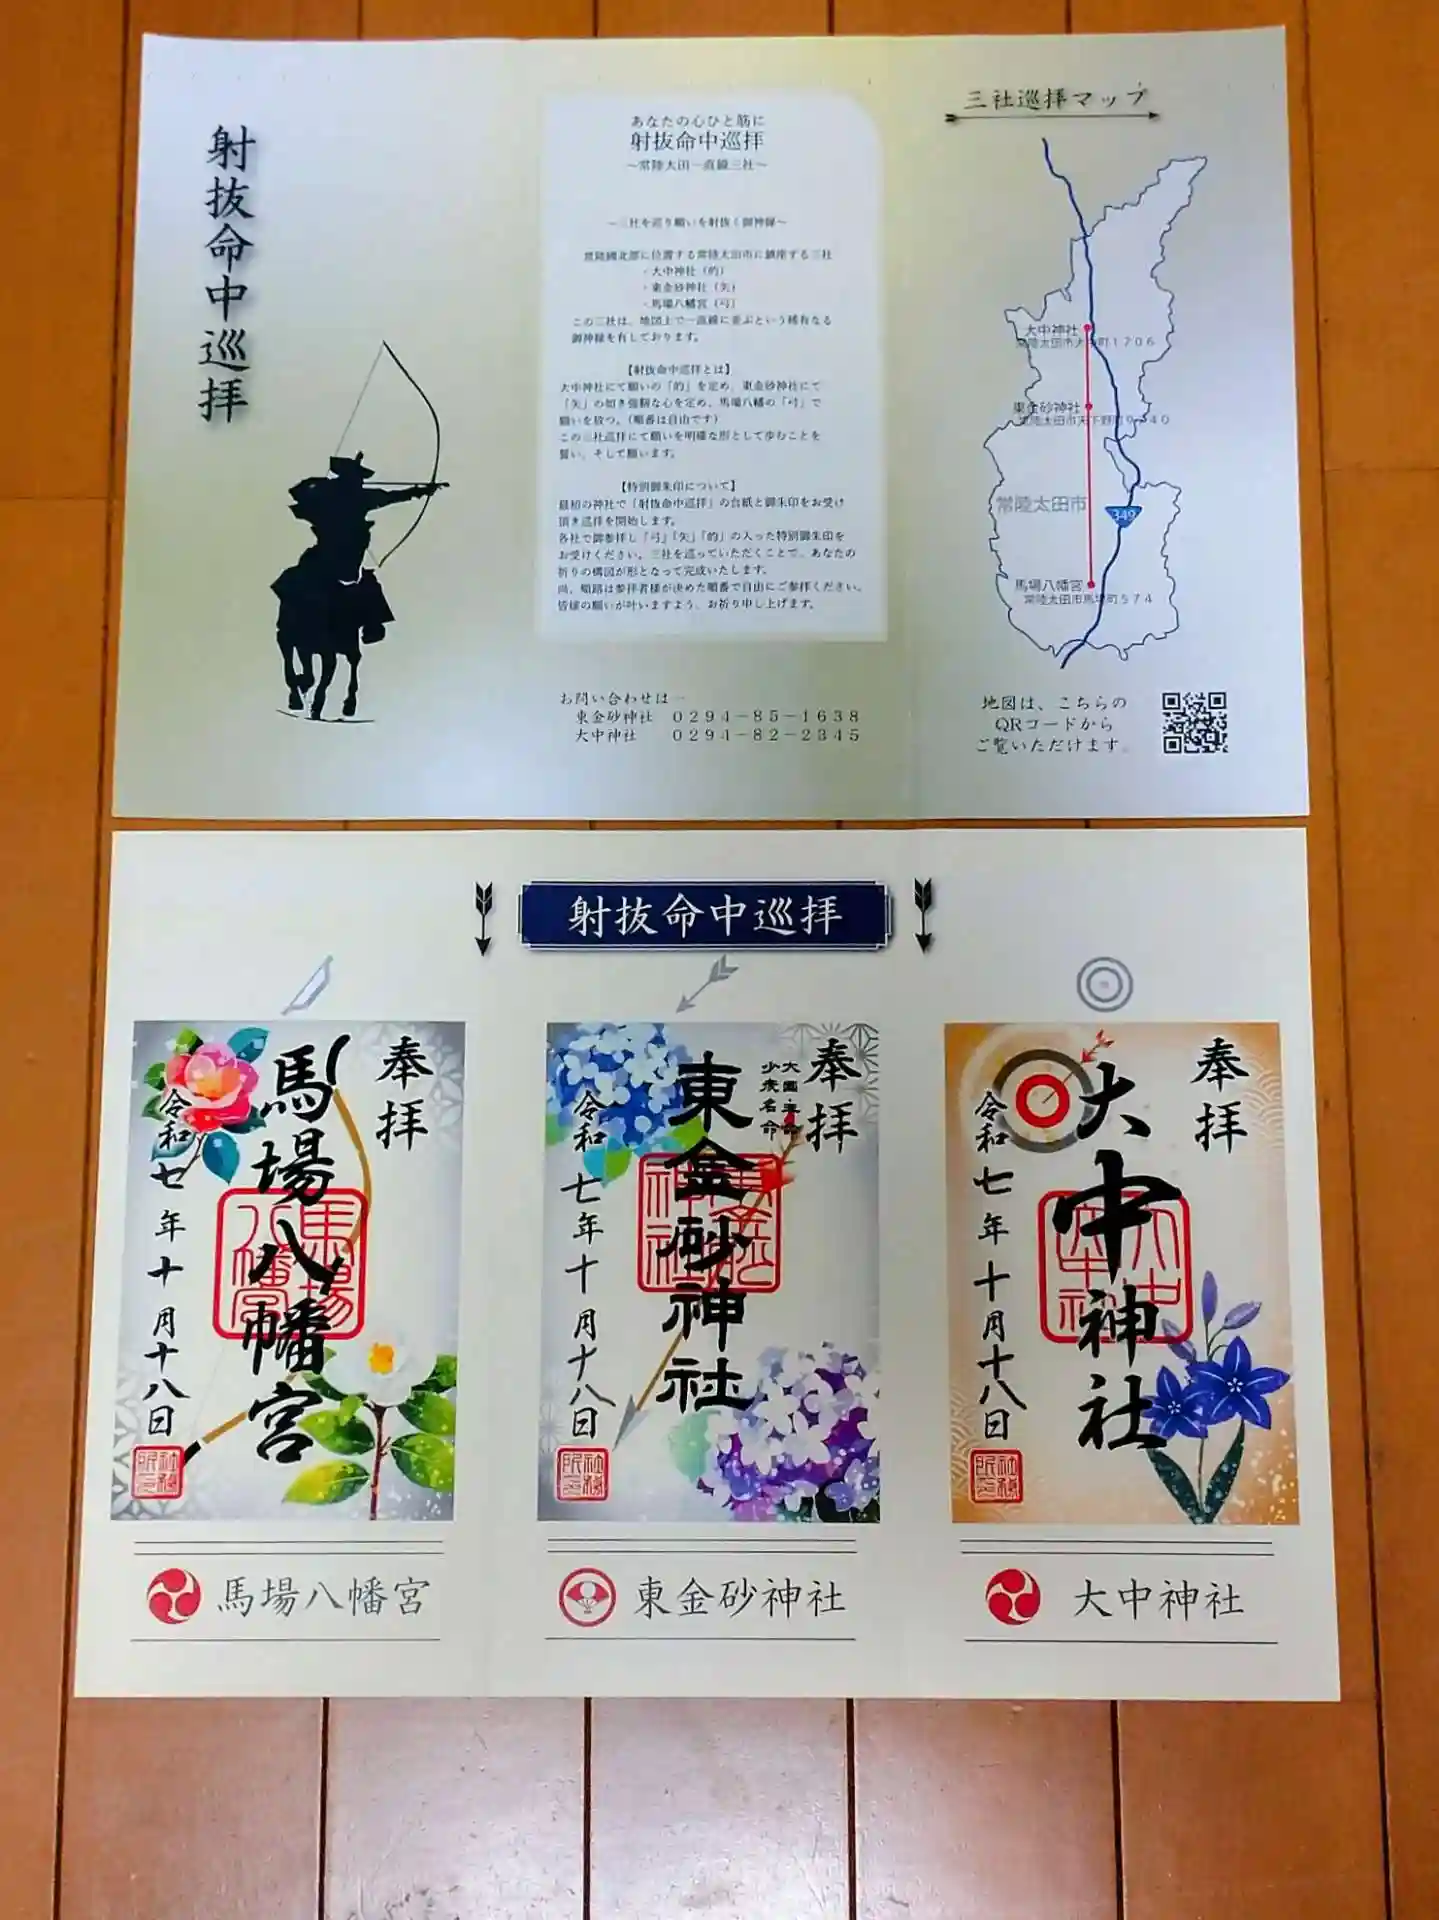 射抜命中巡拝
あなたの心ひと筋に
射抜命中巡拝
～常陸太田一直線三社～
～三社を巡り願いを射抜く御神縁～
常陸國北部に位置する常陸太田市に鎮座する三社
・大中神社（的）
・東金砂神社（矢）
・馬場八幡宮（弓）
この三社は、地図上で一直線に並ぶという稀有なる
御神縁を有しております。
【射抜命中巡拝とは】
大中神社にて願いの「的」を定め、東金砂神社にて
「矢」の如き強靱な心を定め、馬場八幡の「弓」で
願いを放つ。（順番は自由です）
この三社巡拝にて願いを明確な形として歩むことを
誓い、そして願います。
【特別御朱印について】
最初の神社で「射抜命中巡拝」の台紙と御朱印をお受け
頂き巡拝を開始します。
各社で御参拝し「弓」「矢」「的」の入った特別御朱印を
お受けください。三社を巡っていただくことで、あなたの
祈りの構図が形となって完成いたします。
尚、順路は参拝者様が決めた順番で自由にご参拝ください。
皆様の願いが叶いますよう、お祈り申し上げます。
お問い合わせは―
東金砂神社 0294－85－1638
大中神社 0294－82－2345
三社巡拝マップ
大中神社
常陸太田市大中町1706
東金砂神社
常陸太田市天下野町9740
常陸太田市
349
馬場八幡宮
常陸太田市馬場町574
地図は、こちらの
QRコードから
ご覧いただけます。
射抜命中巡拝
奉拝
馬場八幡宮
令和七年十月十八日
馬場八幡宮
奉拝
大国主命
少彦名命
東金砂神社
令和七年十月十八日
東金砂神社
奉拝
大中神社
令和七年十月十八日
大中神社